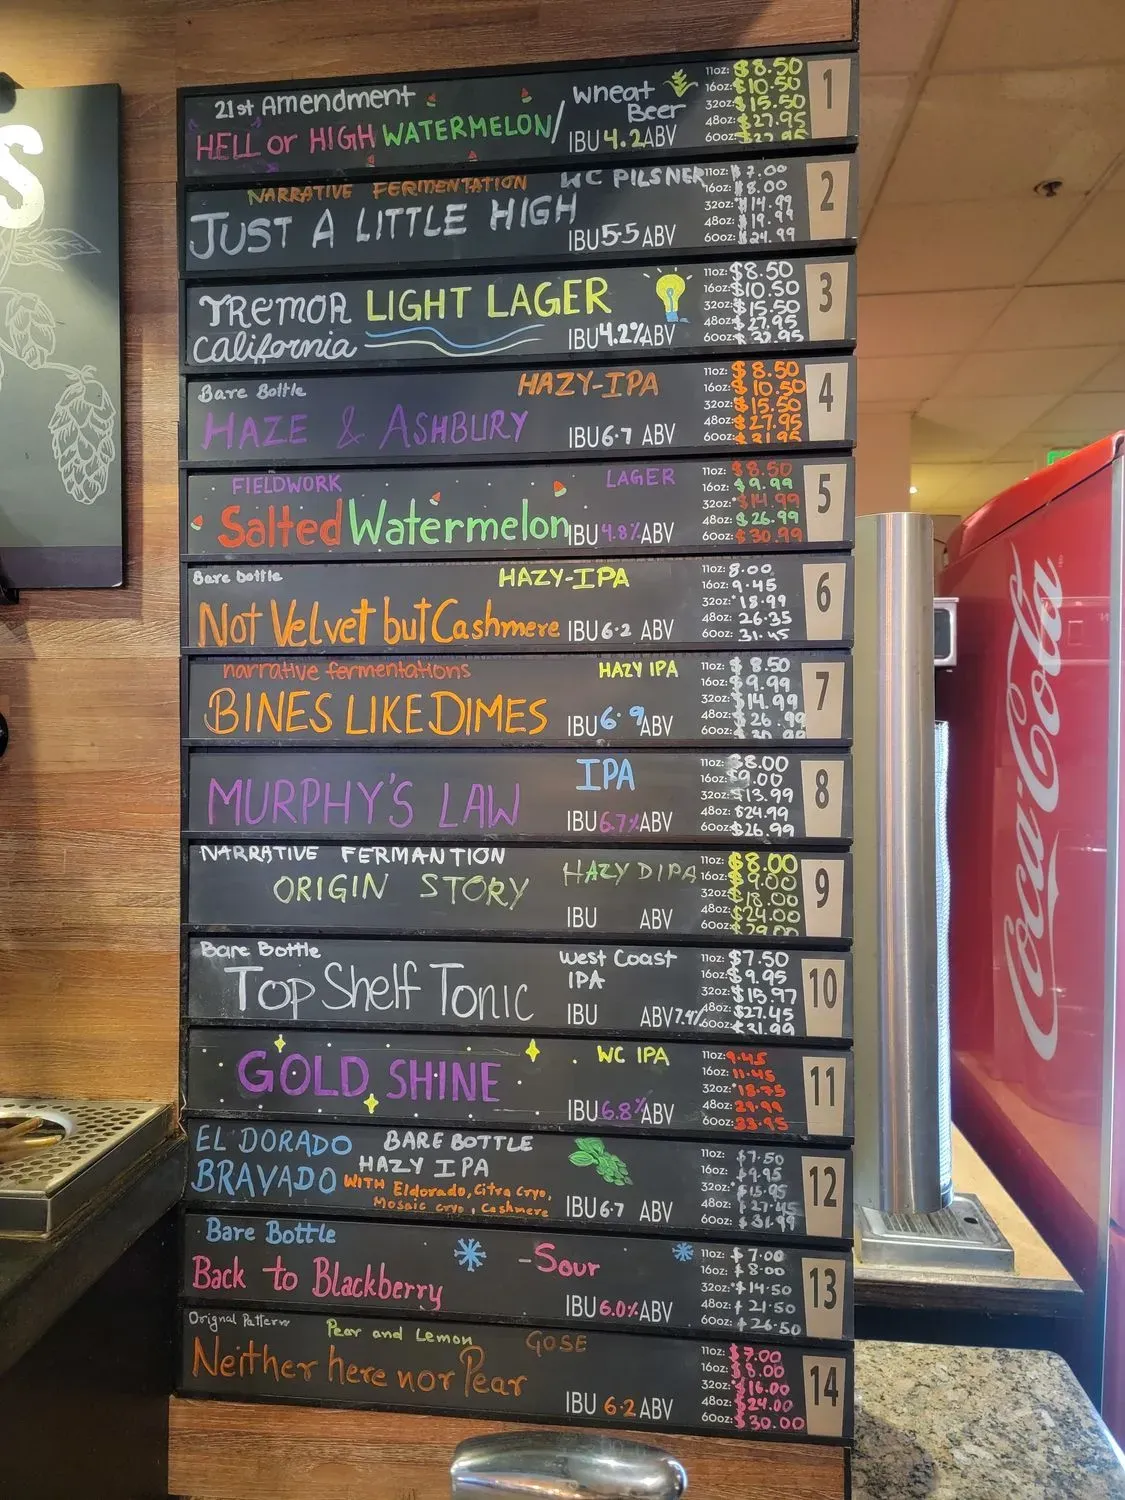 S
21st Amendment
HELL or HIGH WATERMELON/
Wheat
Beer
IBU 4.2 ABV
11oz: $8.50
16oz: $10.50
32oz: $15.50
48oz: $27.95
60oz:
1
NARRATIVE FERMENTATION
WC PILSNER
JUST A LITTLE HIGH
IBU 5.5 ABV
11oz: $7.00
16oz: $8.00
32oz: $14.99
48oz: $19.99
60oz: $24.99
2
TREMOR LIGHT LAGER
California
IBU 4.2% ABV
11oz: $8.50
16oz: $10.50
32oz: $15.50
48oz: $27.95
60oz: $32.95
3
Bare Bottle
HAZY-IPA
HAZE & ASHBURY
IBU 6.7 ABV
11oz: $8.50
16oz: $10.50
32oz: $15.50
48oz: $27.95
60oz: $31.95
4
FIELDWORK
LAGER
Salted Watermelon
IBU 4.8% ABV
11oz: $8.50
16oz: $9.99
32oz: $14.99
48oz: $26.99
60oz: $30.99
5
Bare bottle
HAZY-IPA
Not Velvet but Cashmere
IBU 6.2 ABV
11oz: 8.00
16oz: 9.45
32oz: 18.99
48oz: 26.35
60oz: 31.45
6
narrative fermentations
HAZY IPA
BINES LIKE DIMES
IBU 6.9 ABV
11oz: $8.50
16oz: $9.99
32oz: $14.99
48oz: $26.99
60oz:
7
IPA
MURPHY'S LAW
IBU 6.7% ABV
11oz: $8.00
16oz: $9.00
32oz: $13.99
48oz: $24.99
60oz: $26.99
8
NARRATIVE FERMANTION
ORIGIN STORY
HAZY DIPA
IBU ABV
11oz: $8.00
16oz: $9.00
32oz: $18.00
48oz: $24.00
60oz: $29.00
9
Bare Bottle
Top Shelf Tonic
West Coast
IPA
IBU ABV 7.4%
11oz: $7.50
16oz: $9.95
32oz: $15.97
48oz: $27.45
60oz: $31.99
10
WC IPA
GOLD SHINE
IBU 6.8% ABV
11oz: 9.45
16oz: 11.45
32oz: 18.75
48oz: 29.99
60oz: 33.95
11
EL' DORADO
BRAVADO
BARE BOTTLE
HAZY IPA
WITH Eldorado, Citra Cryo,
Mosaic cryo, Cashmere
IBU 6.7 ABV
11oz: $7.50
16oz: $9.95
32oz: $15.95
48oz: $27.45
60oz: $31.99
12
Bare Bottle
Back to Blackberry
-Sour
IBU 6.0% ABV
11oz: $7.00
16oz: $8.00
32oz: $14.50
48oz: $21.50
60oz: $26.50
13
Orignal Pattern
Pear and Lemon
GOSE
Neither here nor Pear
IBU 6.2 ABV
11oz: $7.00
16oz: $8.00
32oz: $16.00
48oz: $24.00
60oz: $30.00
14
Coca-Cola